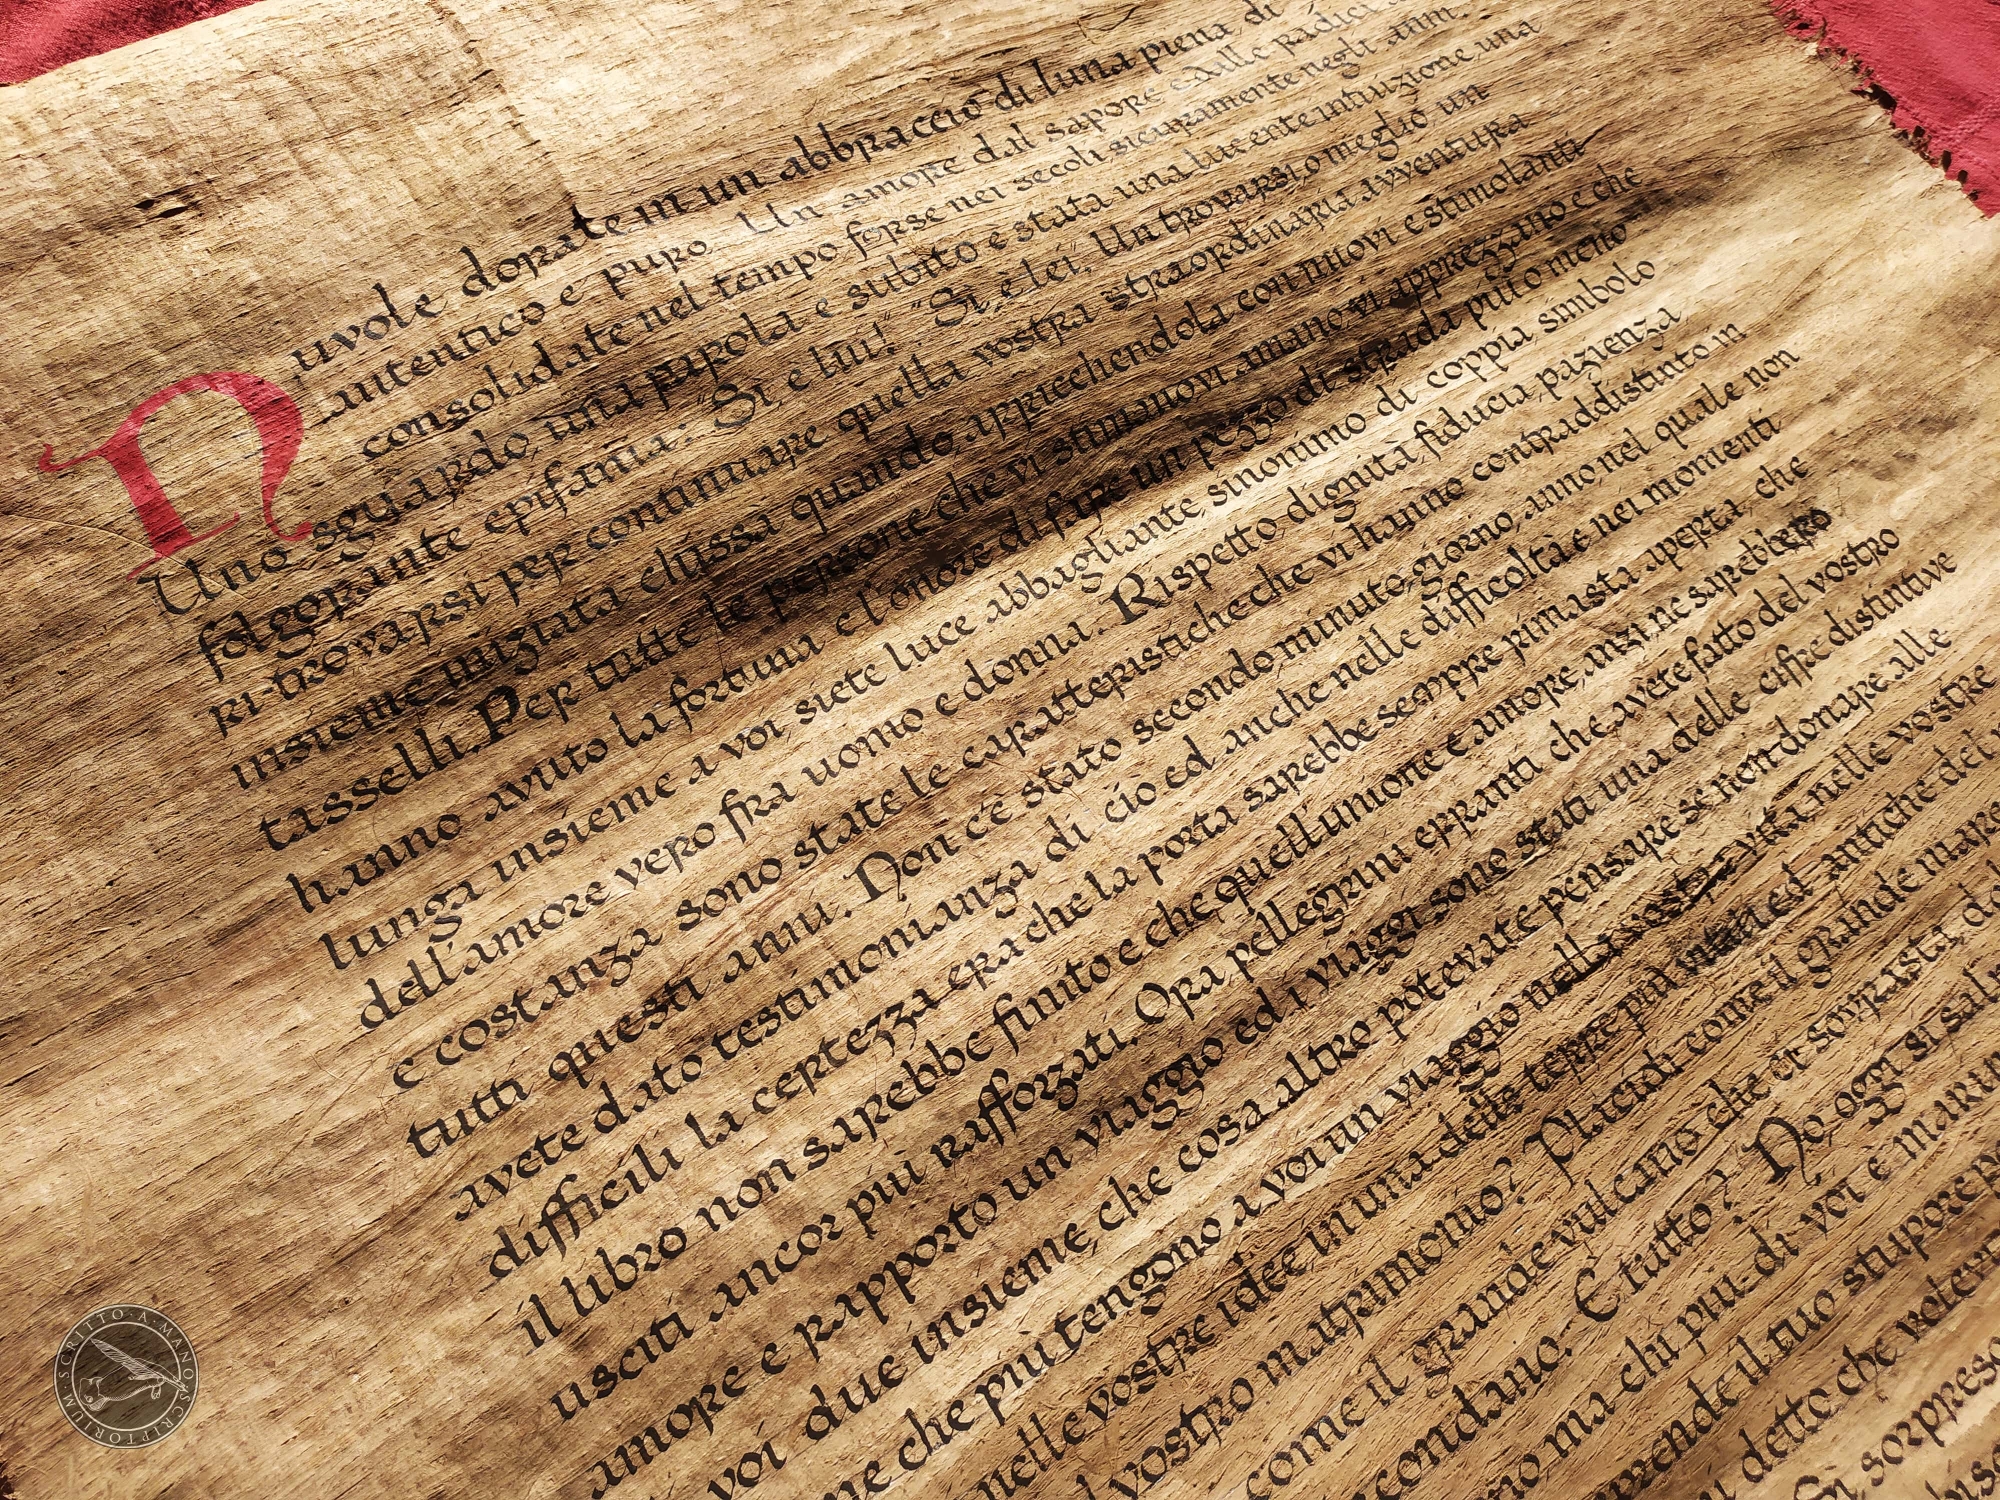 Nuvole dorate in un abbraccio di luna piena, di
autentico e puro. Un amore dal sapore e dalle radici
consolidate nel tempo forse nei secoli, sicuramente negli anni.
Uno sguardo, una parola e subito è stata una lucente intuizione, una
folgorante epifania: "Sì, è lui!" "Sì, è lei". Un trovarsi, o meglio un
ri-trovarsi per continuare quella vostra straordinaria avventura
insieme iniziata chissà quando, arricchendola con nuovi e stimolanti
tasselli. Per tutte le persone che vi stimano, vi amano, vi apprezzano e che
hanno avuto la fortuna e l'onore di fare un pezzo di strada più o meno
lunga insieme a voi, siete luce abbagliante, sinonimo di coppia, simbolo
dell'amore vero fra uomo e donna. Rispetto, dignità, fiducia, pazienza
e costanza sono state le caratteristiche che vi hanno contraddistinto in
tutti questi anni. Non c'è stato secondo, minuto, giorno, anno, nel quale non
avete dato testimonianza di ciò ed anche nelle difficoltà e nei momenti
difficili la certezza era che la porta sarebbe sempre rimasta aperta, che
il libro non sarebbe finito e che quell'unione e amore, anzi, ne sarebbero
usciti ancor più rafforzati. Ora pellegrini erranti che avete fatto del vostro
amore e rapporto un viaggio ed i viaggi sono stati una delle cifre distintive
voi due insieme, che cosa altro potevate pensare se non donare alle
che più tengono a voi un viaggio nella vostra vita, nelle vostre
nelle vostre idee in una delle terre più ed antiche del
vostro matrimonio? Placidi come il grande mare
come il grande vulcano che ci sovrasta, da
condano. E tutto? No, oggi si
ma chi più di voi è
prende il tuo stupore
detto che
sorpreso
SCRITTO·A·MANO·SCRIPTORIUM